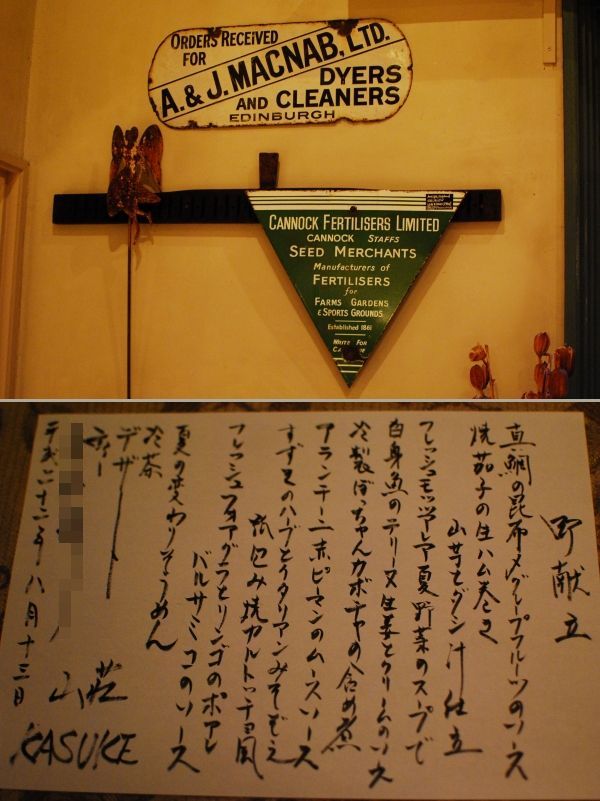 ORDERS RECEIVED
FOR
A. & J. MACNAB, LTD.
DYERS
AND CLEANERS
EDINBURGH
CANNOCK FERTILISERS LIMITED
CANNOCK STAFFS
SEED MERCHANTS
Manufacturers of
FERTILISERS
for
FARMS GARDENS
& SPORTS GROUNDS
Established 1861
WRITE FOR
御献立
真鯛の昆布〆グレープフルーツのソース
焼茄子の生ハム巻き
山芋とダシ汁仕立
フレッシュモッツアレア夏野菜のスープで
白身魚のテリーヌ生姜とクリームのソース
冷製ぼっちゃんカボチャの含め煮
アランチーニ赤ピーマンのムースソース
すずきのハーブとイタリアンみそぞえ
包み焼カルトッチョ風
フレッシュフォアグラとリンゴのポアレ
バルサミコのソース
夏の変わりそうめん
冷茶
デザート
平成二十二年八月十三日
山荘
KASUKE